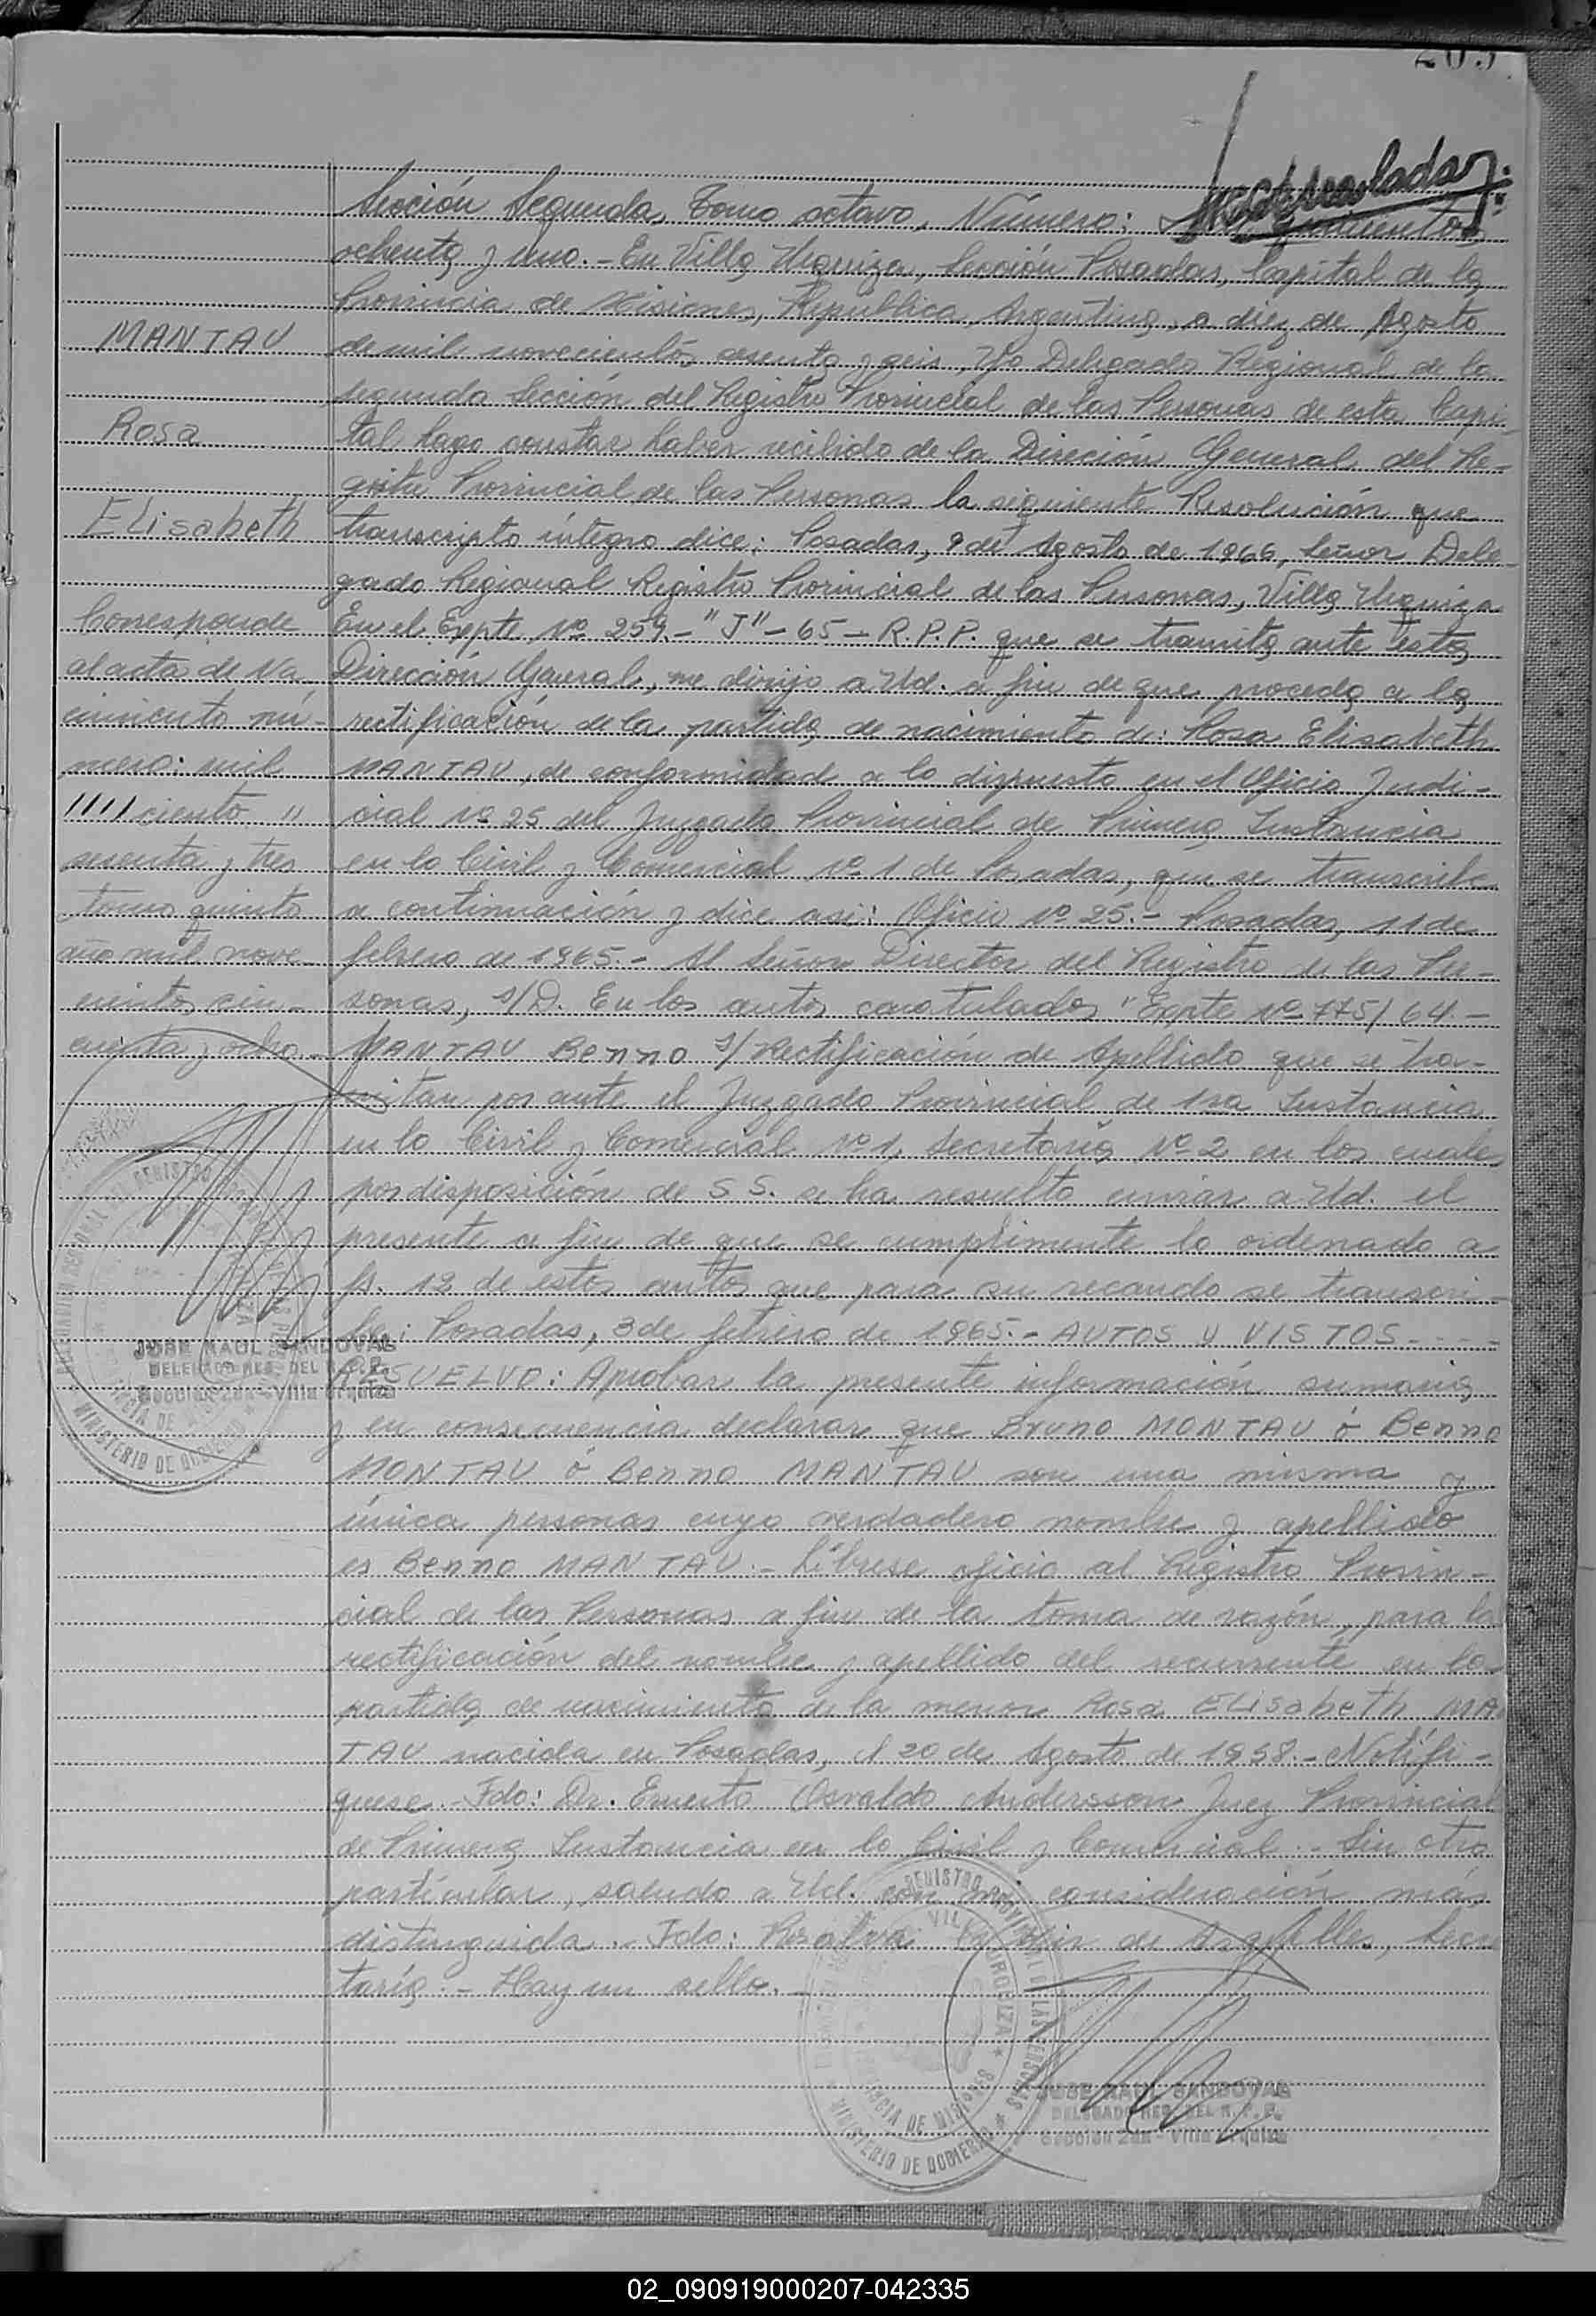 203
Sección Segunda, Tomo octavo, Número:
ochenta y uno.- En Villa Urquiza, Sección Posadas, Capital de la
Provincia de Misiones, República Argentina, a diez de Agosto
MANTAU
de mil novecientos sesenta y seis, Yo Delegado Regional de la
segunda Sección del Registro Provincial de las Personas de esta Capi-
Rosa
tal hago constar haber recibido de la Direción General del Re-
gistro Provincial de las Personas la siguiente Resolución que
Elisabeth
transcripto íntegro dice: Posadas, 9 de Agosto de 1966, Señor Dele-
gado Regional Registro Provincial de las Personas, Villa Urquiza
Corresponde
En el Expte Nº 259.-"J"-65-R.P.P. que se tramita ante esta
al acta de Na
Dirección General, me dirijo a Ud. a fin de que proceda a la
cimiento nú-
rectificación de la partida de nacimiento de: Rosa Elisabeth
mero: mil
MANTAU, de conformidad a lo dispuesto en el Oficio Judi-
//// ciento "
cial Nº 25 del Juzgado Provincial de Primera Instancia
sesenta y tres
en lo Civil y Comercial Nº 1 de Posadas, que se transcribe
tomo quinto
a continuación y dice asi: Oficio Nº 25.- Posadas, 11 de
año mil nove-
febrero de 1965.- Al Señor Director del Registro de las Per-
cientos cin-
sonas, S/D. En los autos caratulados "Expte Nº 775/64-
cuenta y ocho
MANTAU Benno S/ Rectificación de Apellido que se tra-
mitan por ante el Juzgado Provincial de 1ra Instancia
en lo Civil y Comercial Nº 1, Secretaría Nº 2 en los cuales
por disposición de S S. se ha resuelto enviar a Ud. el
presente a fin de que se cumplimente lo ordenado a
fs. 12 de estos autos que para su recaudo se transcri-
be: Posadas, 3 de febrero de 1965.- AUTOS Y VISTOS----
RESUELVO: Aprobar la presente información sumaria
y en consecuencia declarar que Bruno MONTAU ó Benno
MONTAU ó Benno MANTAU son una misma y
única personas cuyo verdadero nombre y apellido
es Benno MANTAU.- Líbrese oficio al Registro Provin-
cial de las Personas a fin de la toma de razón, para la
rectificación del nombre y apellido del recurrente en la
partida de nacimiento de la menor Rosa ELisabeth MA
TAU nacida en Posadas, el 20 de Agosto de 1958.- Notífi-
quese.- Fdo: Dr. Ernesto Osvaldo Andersson Juez Provincial
de Primera Instancia en lo Civil y Comercial.- Sin otro
particular, saludo a Ud. con mi consideración más
distinguida.- Fdo: de Argüelles, Secre
taría.- Hay un sello.-
JOSE RAUL SANDOVAL
DELEGADO REG. DEL R. P. P.
Sección 2da - Villa Urquiza
JOSE RAUL SANDOVAL
DELEGADO REG. DEL R. P. P.
Sección 2da - Villa Urquiza
02_090919000207-042335